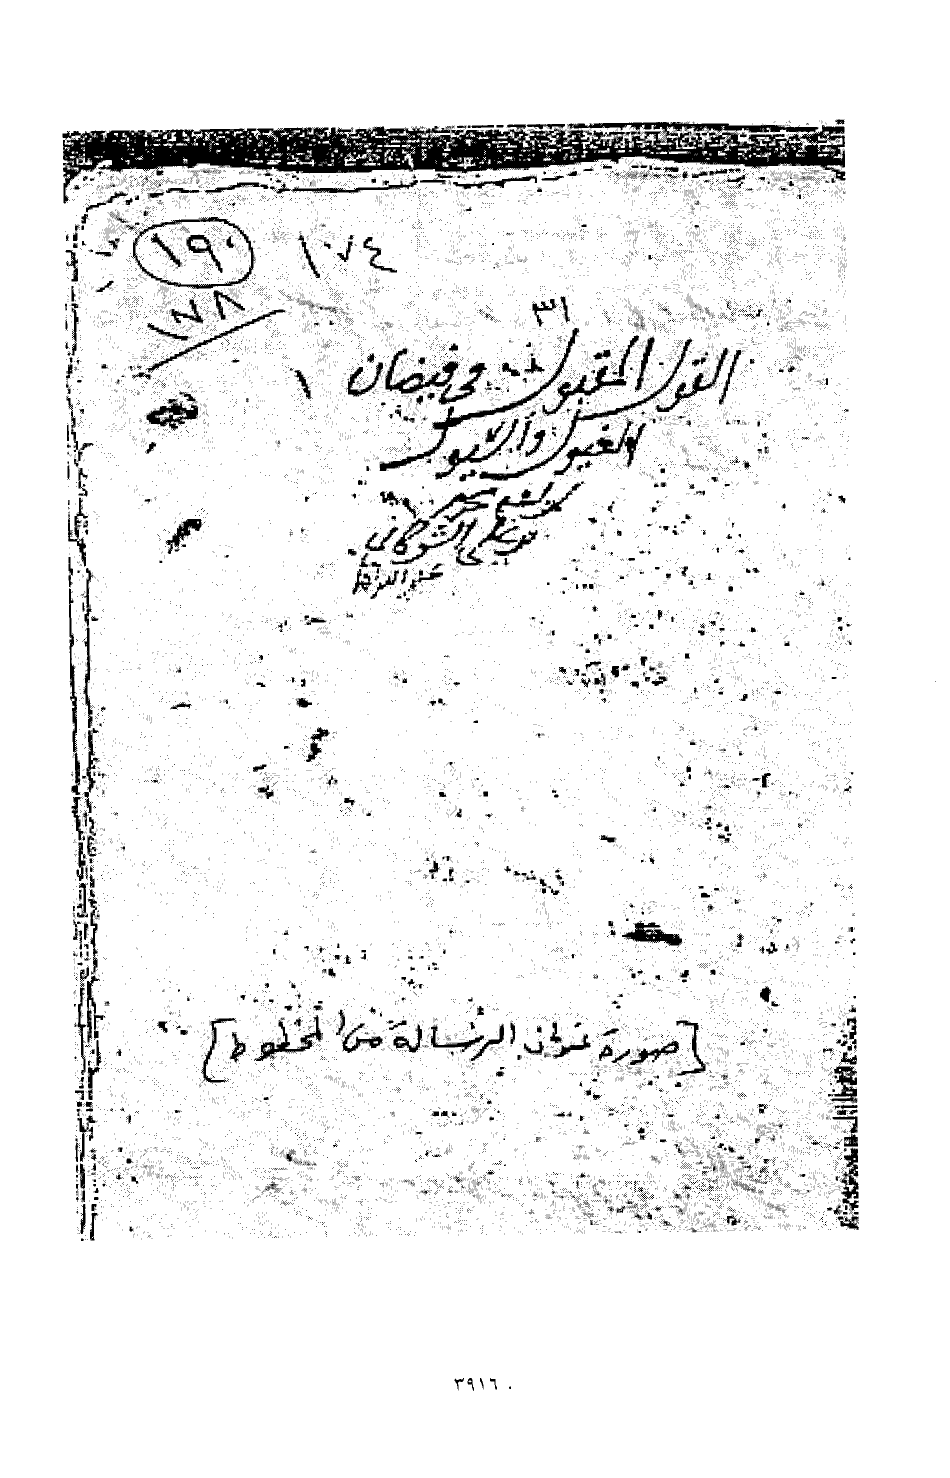 ١٩٠ ١٠٧٤
١٧٨
٣١
القول المقبول في فيضان
الغيول والسيول
محمد
بن علي الشوكاني
[صورة عنوان الرسالة من المخطوط]
٣٩١٦